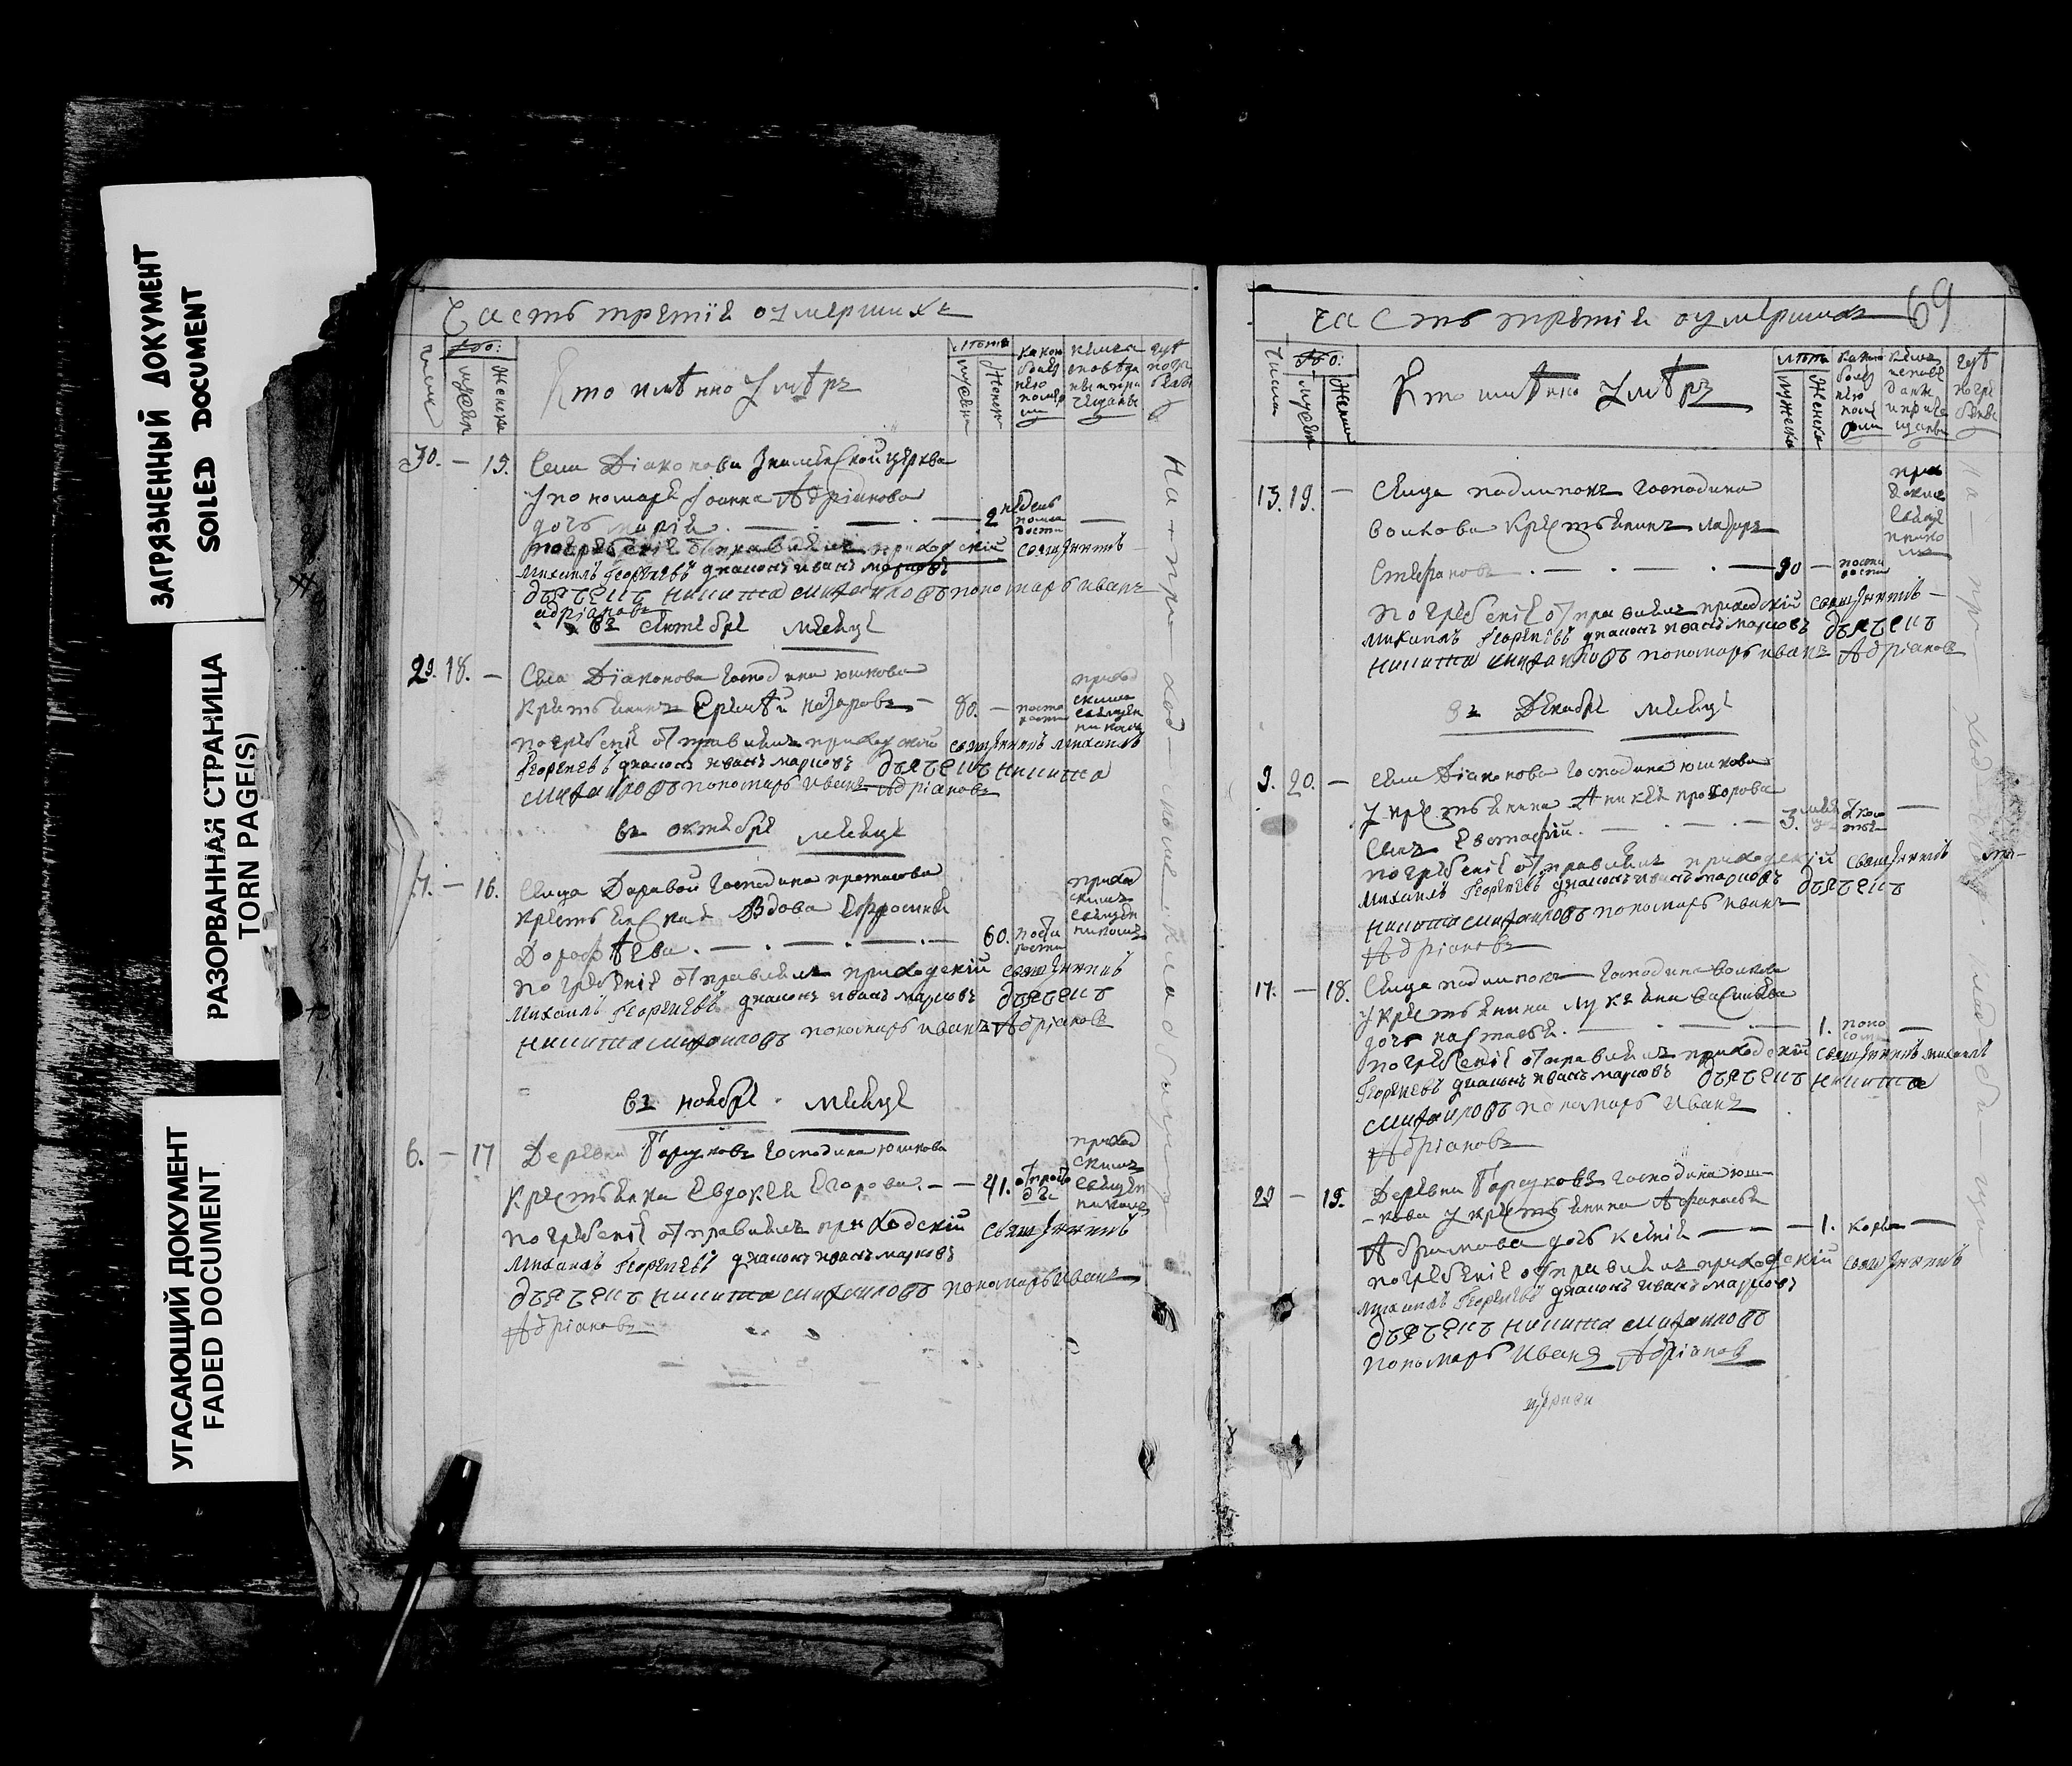 ЗАГРЯЗНЕННЫЙ ДОКУМЕНТ
SOILED DOCUMENT
РАЗОРВАННАЯ СТРАНИЦА
TORN PAGE(S)
УГАСАЮЩИЙ ДОКУМЕНТ
FADED DOCUMENT
Часть третiя оумершихъ
Кто имѣнно Умѣръ
30. — 15. Села Дiаконова Знаменской церкви
Упономаря Iоанна Адрiанова
дочь марiя 2
погребенiе отправлялъ приходскiй священникъ
Михаилъ Георгiевъ диаконъ иванъ марковъ
дьячекъ никита михаиловъ пономарь иванъ
адрiановъ
въ сентебре месяце
29. 18. — Села Дiаконова господина юшкова
Крестьянинъ Еремѣй назаровъ — 80. —
погребенiе отправлялъ приходскiй священникъ михаилъ
Георгiевъ диаконъ иванъ марковъ дьячекъ никита
михаиловъ пономарь иванъ Адрiановъ
въ октебре месяце
7. — 16. Сельца господина протасова
крестьянская Вдова Ефросиния
Дорофѣева 60.
погребенiе отправлялъ приходскiй священникъ
Михаилъ Георгiевъ диаконъ иванъ марковъ дьячекъ
никита михаиловъ пономарь иванъ Адрiановъ
въ ноебре месяце
6. — 17 Деревни господина юшкова
Крестьянка Евдокея Егорова — — 41.
погребенiе отправлялъ приходскiй священникъ
Михаилъ Георгiевъ диаконъ иванъ марковъ
дьячекъ никита михаиловъ пономарь иванъ
Адрiановъ
часть третiя оумершихъ 69
Кто имѣнно Умѣръ
13. 19. — Сельца подлипокъ господина
волкова Крестьянинъ лазарь
Стефановъ 90 —
погребенiе отправлялъ приходскiй священникъ
михаилъ Георгiевъ диаконъ иванъ марковъ дьячекъ
никита михаиловъ пономарь иванъ Адрiановъ
въ Декабре месяце
9. 20. — Села Дiаконова господина юшкова
У крестьянина Аникея прохорова
сынъ Евстафiй 3.
погребенiе отправлялъ приходскiй священникъ
михаилъ Георгiевъ диаконъ иванъ марковъ дьячекъ
никита михаиловъ пономарь иванъ
Адрiановъ
17. — 18. Сельца подлипокъ господина волкова
У крестьянина лукьяна васильева
дочь настасья 1.
погребенiе отправлялъ приходскiй священникъ михаилъ
Георгiевъ диаконъ иванъ марковъ дьячекъ никита
михаиловъ пономарь иванъ
Адрiановъ
29 — 19. Деревни господина юш-
-кова У крестьянина Афанасья
Абрамова дочь ксения — — — 1. корью —
погребенiе отправлялъ приходскiй священникъ
михаилъ Георгiевъ диаконъ иванъ марковъ
дьячекъ никита михаиловъ
пономарь иванъ Адрiановъ